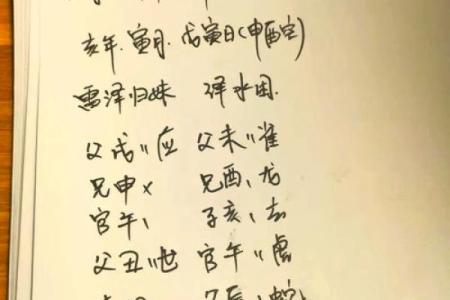 亥年.寅月.戊寅日(申酉空)
雷泽归妹 泽水困.
父戌〃应 父未〃雀
兄申× 兄酉、龙
官午、 子亥、玄
父丑〃世 官午〃虎